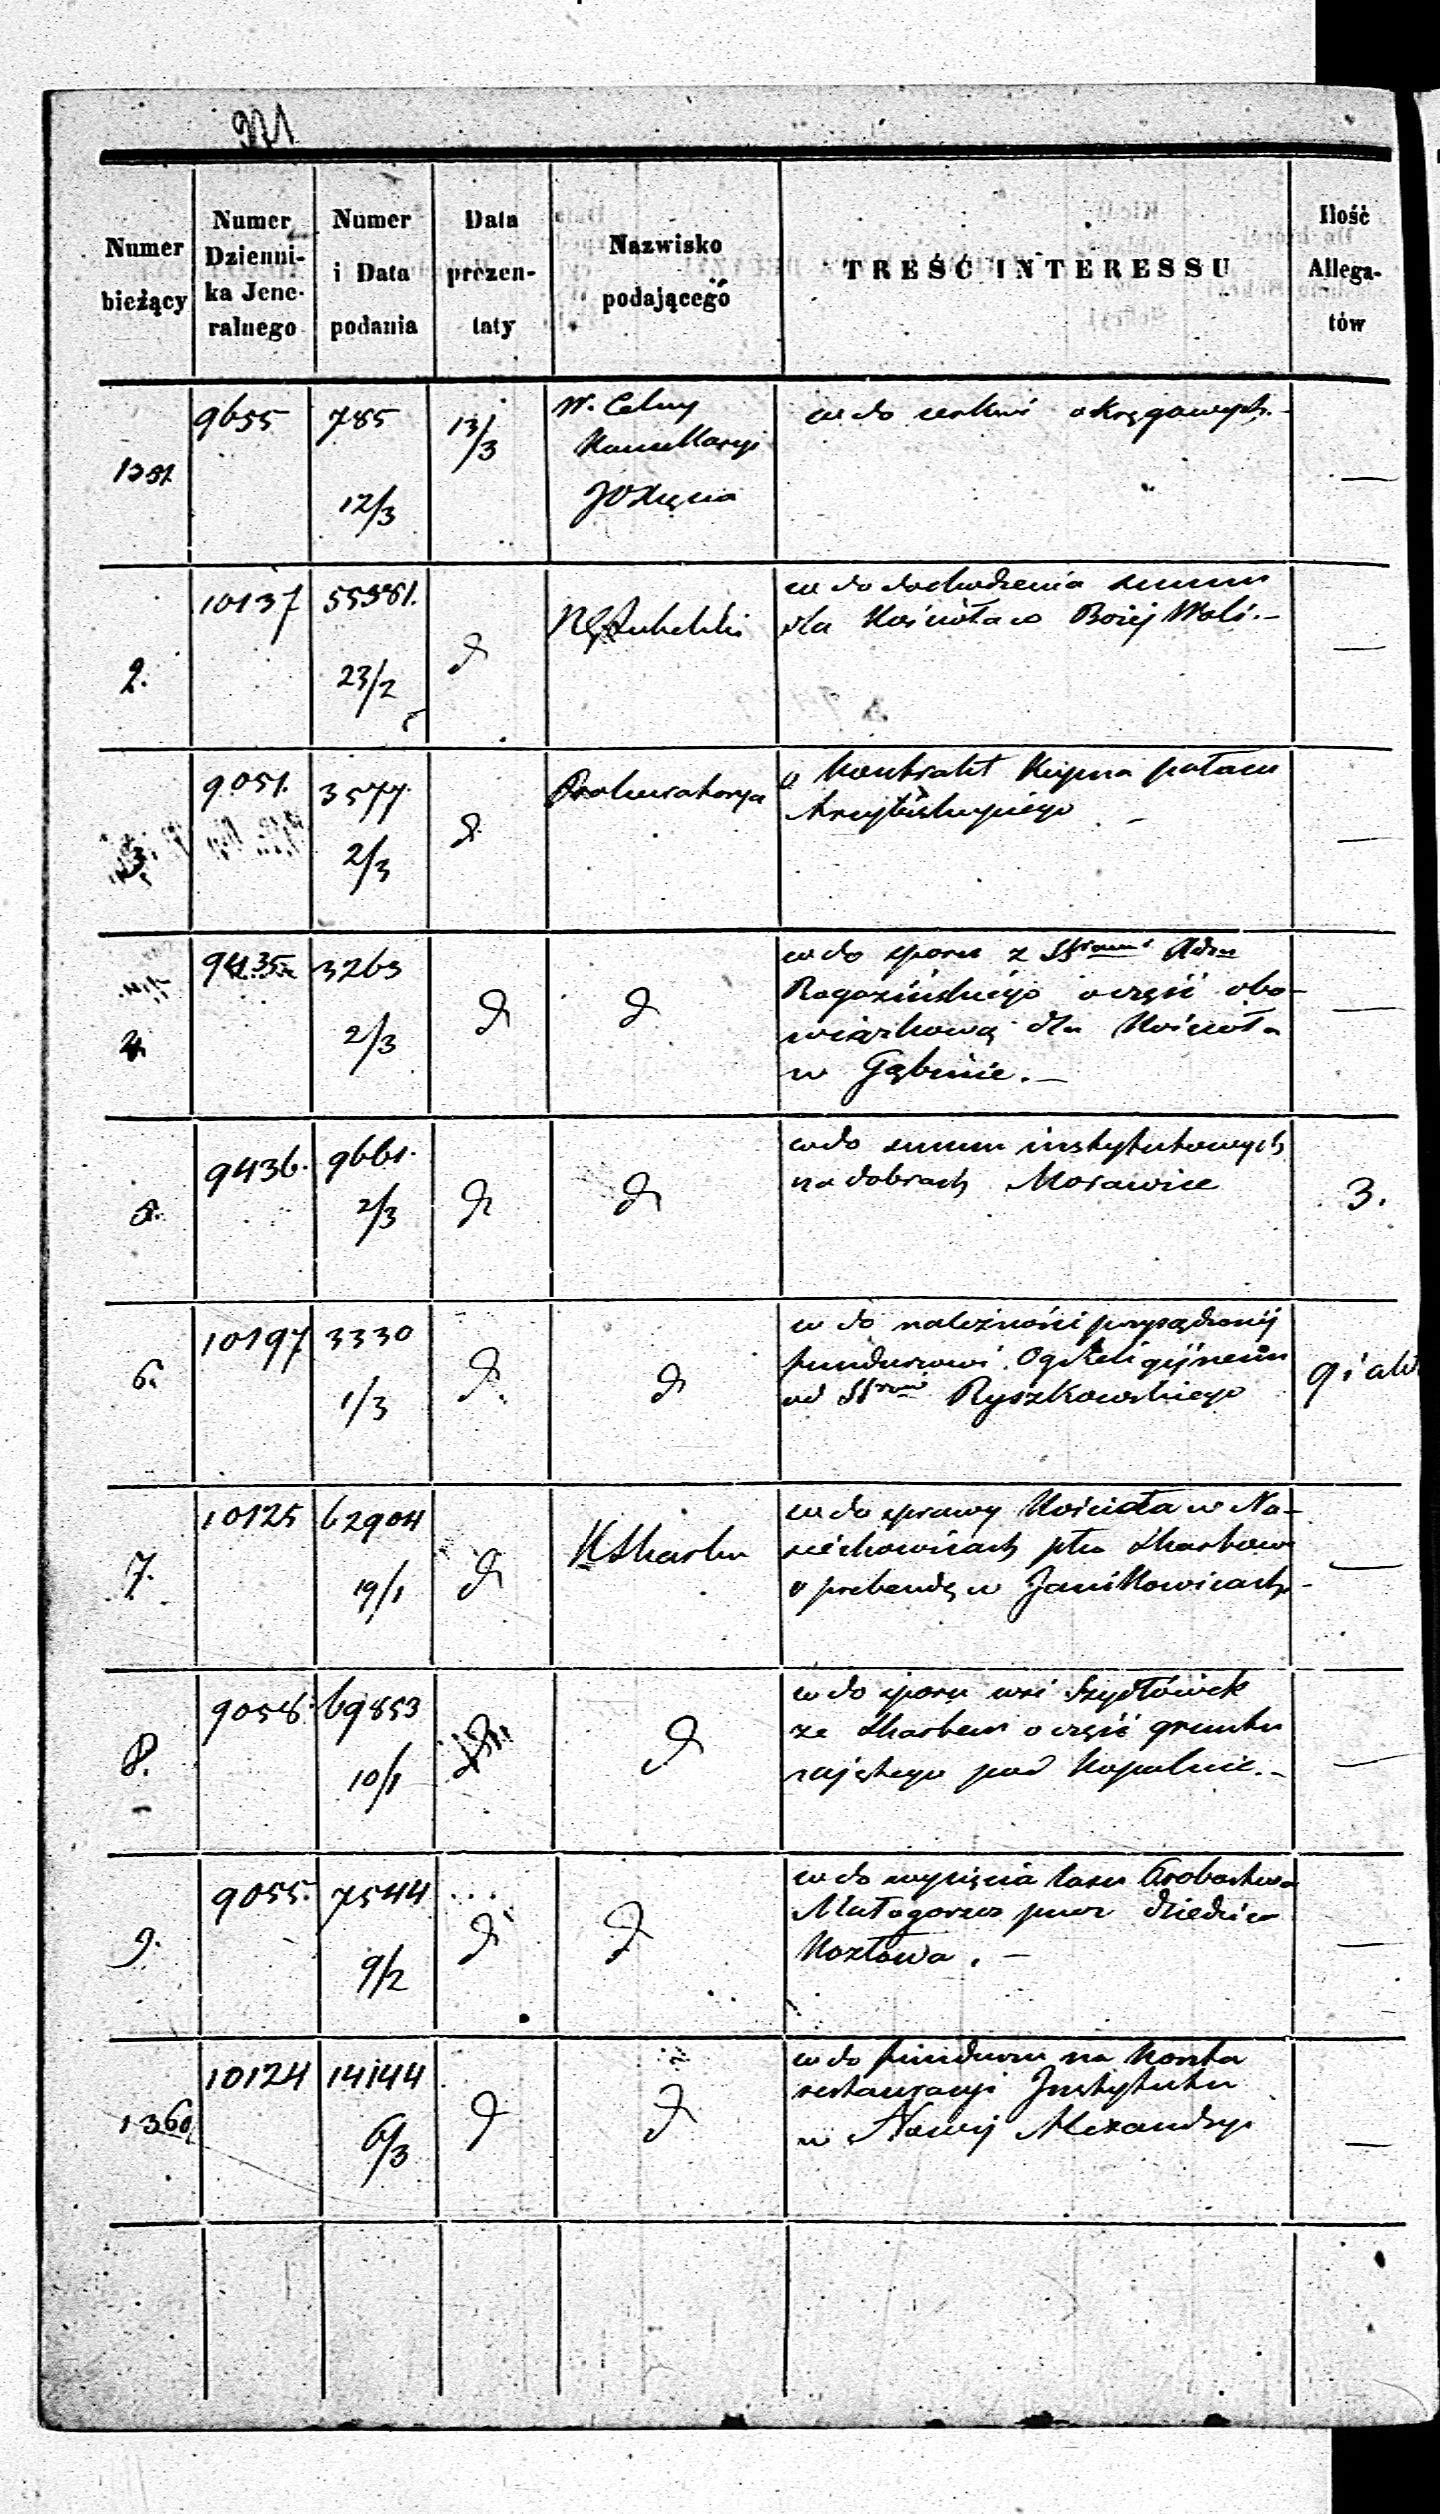 Numer bieżący
Numer Dziennika Jeneralnego
Numer i Data podania
Data prezentaty
Nazwisko podającego
TREŚĆ INTERESSU
Ilość Allegatów
1351 9655 785 12/3 13/3
W. Celny
Kancellaryi
JOXięcia
w do cerkwi okręgowych. —
2. 10137 55381. 23/2 d
RG Lubelski
w do dochodzenia summ
dla Kościoła w Bożej Woli. —
3. 9051. 3577. 2/3 d
Prokuratorya
o kontrakt Kupna pałacu
Arcybiskupiego —
4 9435 3263 2/3 d d
w do sporu z
Rogozińskiego o część obo-
wiązkową dla Kościoła
w Gąbinie. —
5. 9436. 9661. 2/3 d d
w do summ instytutowych
na dobrach Morawice
3.
6. 10197 3330 1/3 d d
w do należności przysądzonej
funduszowi Og Religijnemu
od Ryszkowskiego
9 i akt
7. 10125 62904 19/1 d
K Skarbu
w do sprawy Kościoła w Na-
siechowicach pko Skarbowi
o prebendę w Janikowicach. —
8. 9058. 69853 10/1 d d
w do sporu wsi Szydłówek
ze Skarbem o część gruntu
zajętego pod Kopalnie. —
9. 9055. 7544 9/2 d d
w do wycięcia lasu Probostwa
Małogoszcz przez dziedzica
Kozłowa. —
1360 10124 14144 6/3 d d
w do funduszu na koszta
restauracyi Instytutu
w Nowej Alexandryi
—